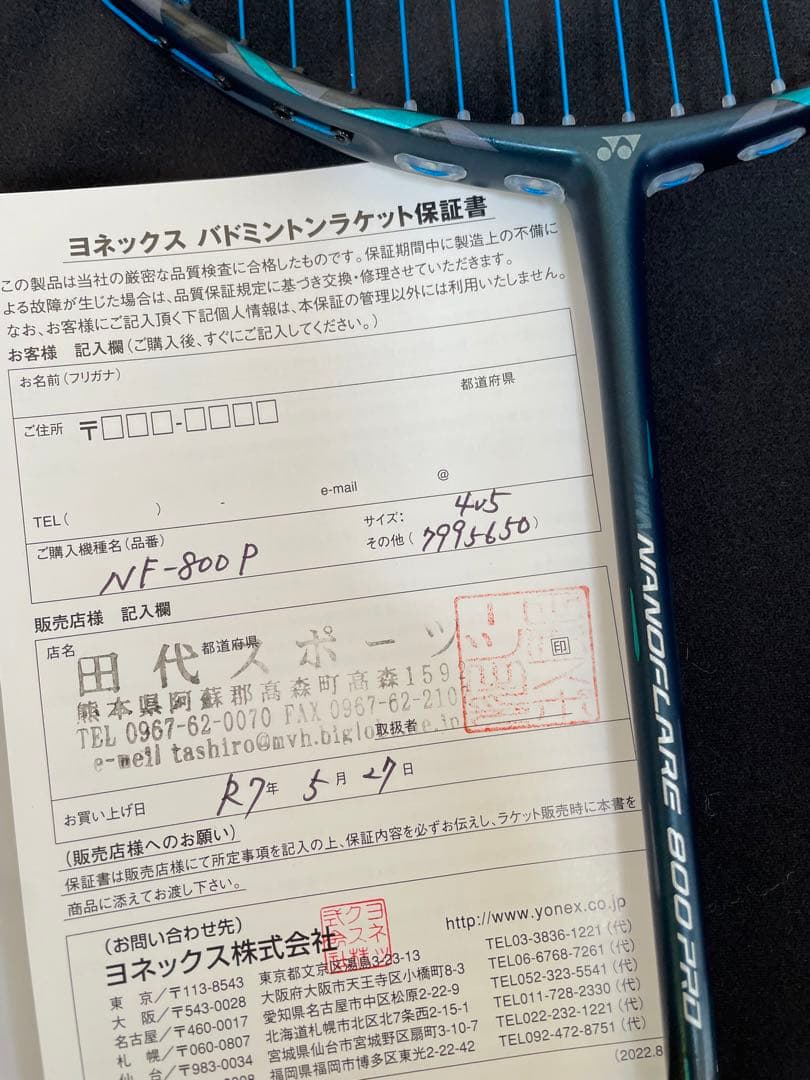 ヨネックス バドミントンラケット保証書
この製品は当社の厳密な品質検査に合格したものです。保証期間中に製造上の不備に
よる故障が生じた場合は、品質保証規定に基づき交換・修理させていただきます。
なお、お客様にご記入頂く下記個人情報は、本保証の管理以外には利用いたしません。
お客様 記入欄(ご購入後、すぐにご記入してください。)
お名前(フリガナ)
都道府県
ご住所 〒□□□-□□□□
TEL( ) - e-mail @
ご購入機種名(品番) サイズ: 4U5
NF-800P その他(7995650)
販売店様 記入欄
店名 都道府県
田代スポーツ
印
熊本県阿蘇郡高森町高森159
TEL 0967-62-0070 FAX 0967-62-210
e-meil tashiro@mvh.biglo e.in
取扱者
お買い上げ日 R7年 5月 27日
(販売店様へのお願い)
保証書は販売店様にて所定事項を記入の上、保証内容を必ずお伝えし、ラケット販売時に本書を
商品に添えてお渡し下さい。
(お問い合わせ先)
ヨネックス株式会社
http://www.yonex.co.jp
東 京/〒113-8543 東京都文京区湯島3-23-13 TEL03-3836-1221(代)
大 阪/〒543-0028 大阪府大阪市天王寺区小橋町8-3 TEL06-6768-7261(代)
名古屋/〒460-0017 愛知県名古屋市中区松原2-22-9 TEL052-323-5541(代)
札 幌/〒060-0807 北海道札幌市北区北7条西2-15-1 TEL011-728-2330(代)
仙 台/〒983-0034 宮城県仙台市宮城野区扇町3-10-7 TEL022-232-1221(代)
福岡県福岡市博多区東光2-22-42 TEL092-472-8751(代)
(2022.8
NANOFLARE 800 PRO